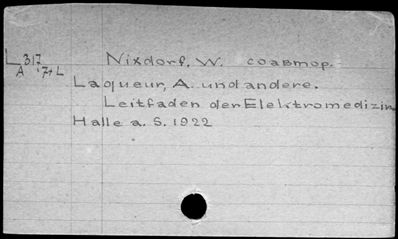 L 317
A 7+L
Nixdorf, W. соавтор.
Laqueur, A. und andere.
Leitfaden der Elektromedizin
Halle a. S. 1922